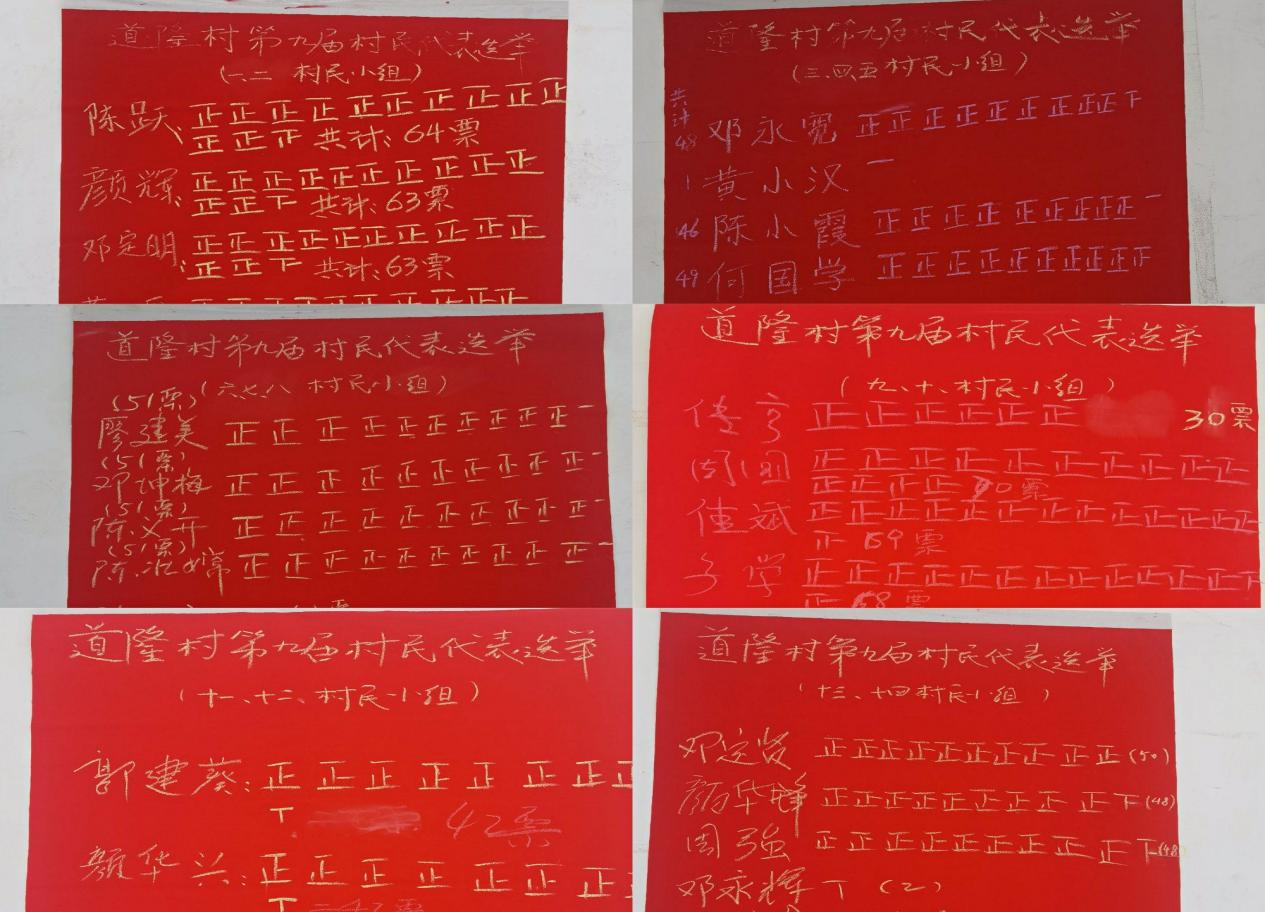 道隆村第九届村民代表选举
(一、二 村民小组)
陈跃: 正正正正正正正正正正
正正下 共计: 64票
颜辉: 正正正正正正正正正正
正正下 共计: 63票
邓定明: 正正正正正正正正正正
正正下 共计: 63票
道隆村第九届村民代表选举
(三、四、五村民小组)
共计
48 邓永宽 正正正正正正正正正下
1 黄小汉 一
46 陈小霞 正正正正正正正正正一
49 何国学 正正正正正正正正正
道隆村第九届村民代表选举
(六、七、八 村民小组)
(51票)
廖建美 正正正正正正正正正正一
(51票)
邓坤梅 正正正正正正正正正正一
(51票)
陈义开 正正正正正正正正正正一
(51票)
陈 常 正正正正正正正正正正一
道隆村第九届村民代表选举
(九、十、村民小组)
正正正正正正 30票
国 正正正正正正正正正正
正正正正 70票
佳斌 正正正正正正正正正正正
正 59票
学 正正正正正正正正正正正
正 58票
道隆村第九届村民代表选举
(十一、十二、村民小组)
郭建葵: 正正正正正正正正
丅 42票
颜华兴: 正正正正正正正正
丅 =42票
道隆村第九届村民代表选举
(十三、十四村民小组)
邓定贤 正正正正正正正正正正 (50)
颜华锋 正正正正正正正正正下 (48)
周强 正正正正正正正正正下 (48)
邓永辉 丅 (2)